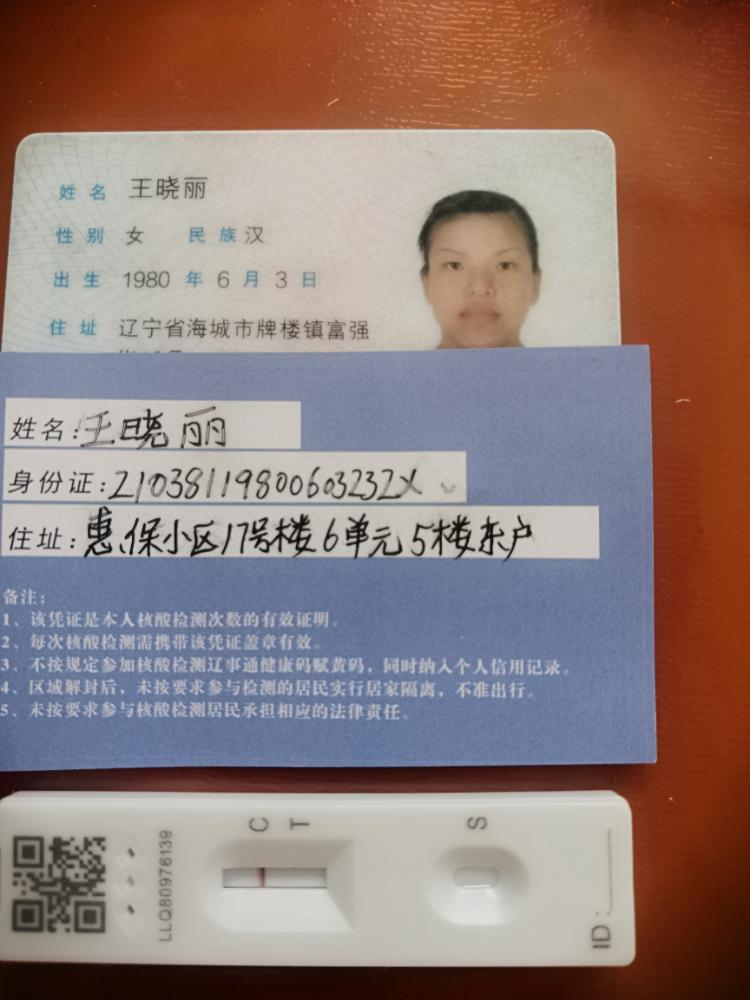 姓名 王晓丽
性别 女 民族 汉
出生 1980 年 6 月 3 日
住址 辽宁省海城市牌楼镇富强
姓名:王晓丽
身份证:21038119800603232X
住址:惠保小区17号楼6单元5楼东户
备注:
1、该凭证是本人核酸检测次数的有效证明。
2、每次核酸检测需携带该凭证盖章有效。
3、不按规定参加核酸检测辽事通健康码赋黄码，同时纳入个人信用记录。
4、区域解封后，未按要求参与检测的居民实行居家隔离，不准出行。
5、未按要求参与核酸检测居民承担相应的法律责任。
LLQ80976139
C T S
ID: